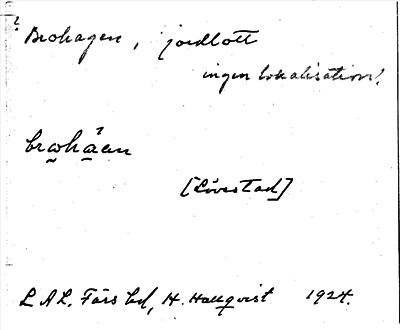 ?
Brohagen, jordlott
ingen lokalisation!
[Lövestad]
L A L. Färs hd, H. Hallqvist 1924.